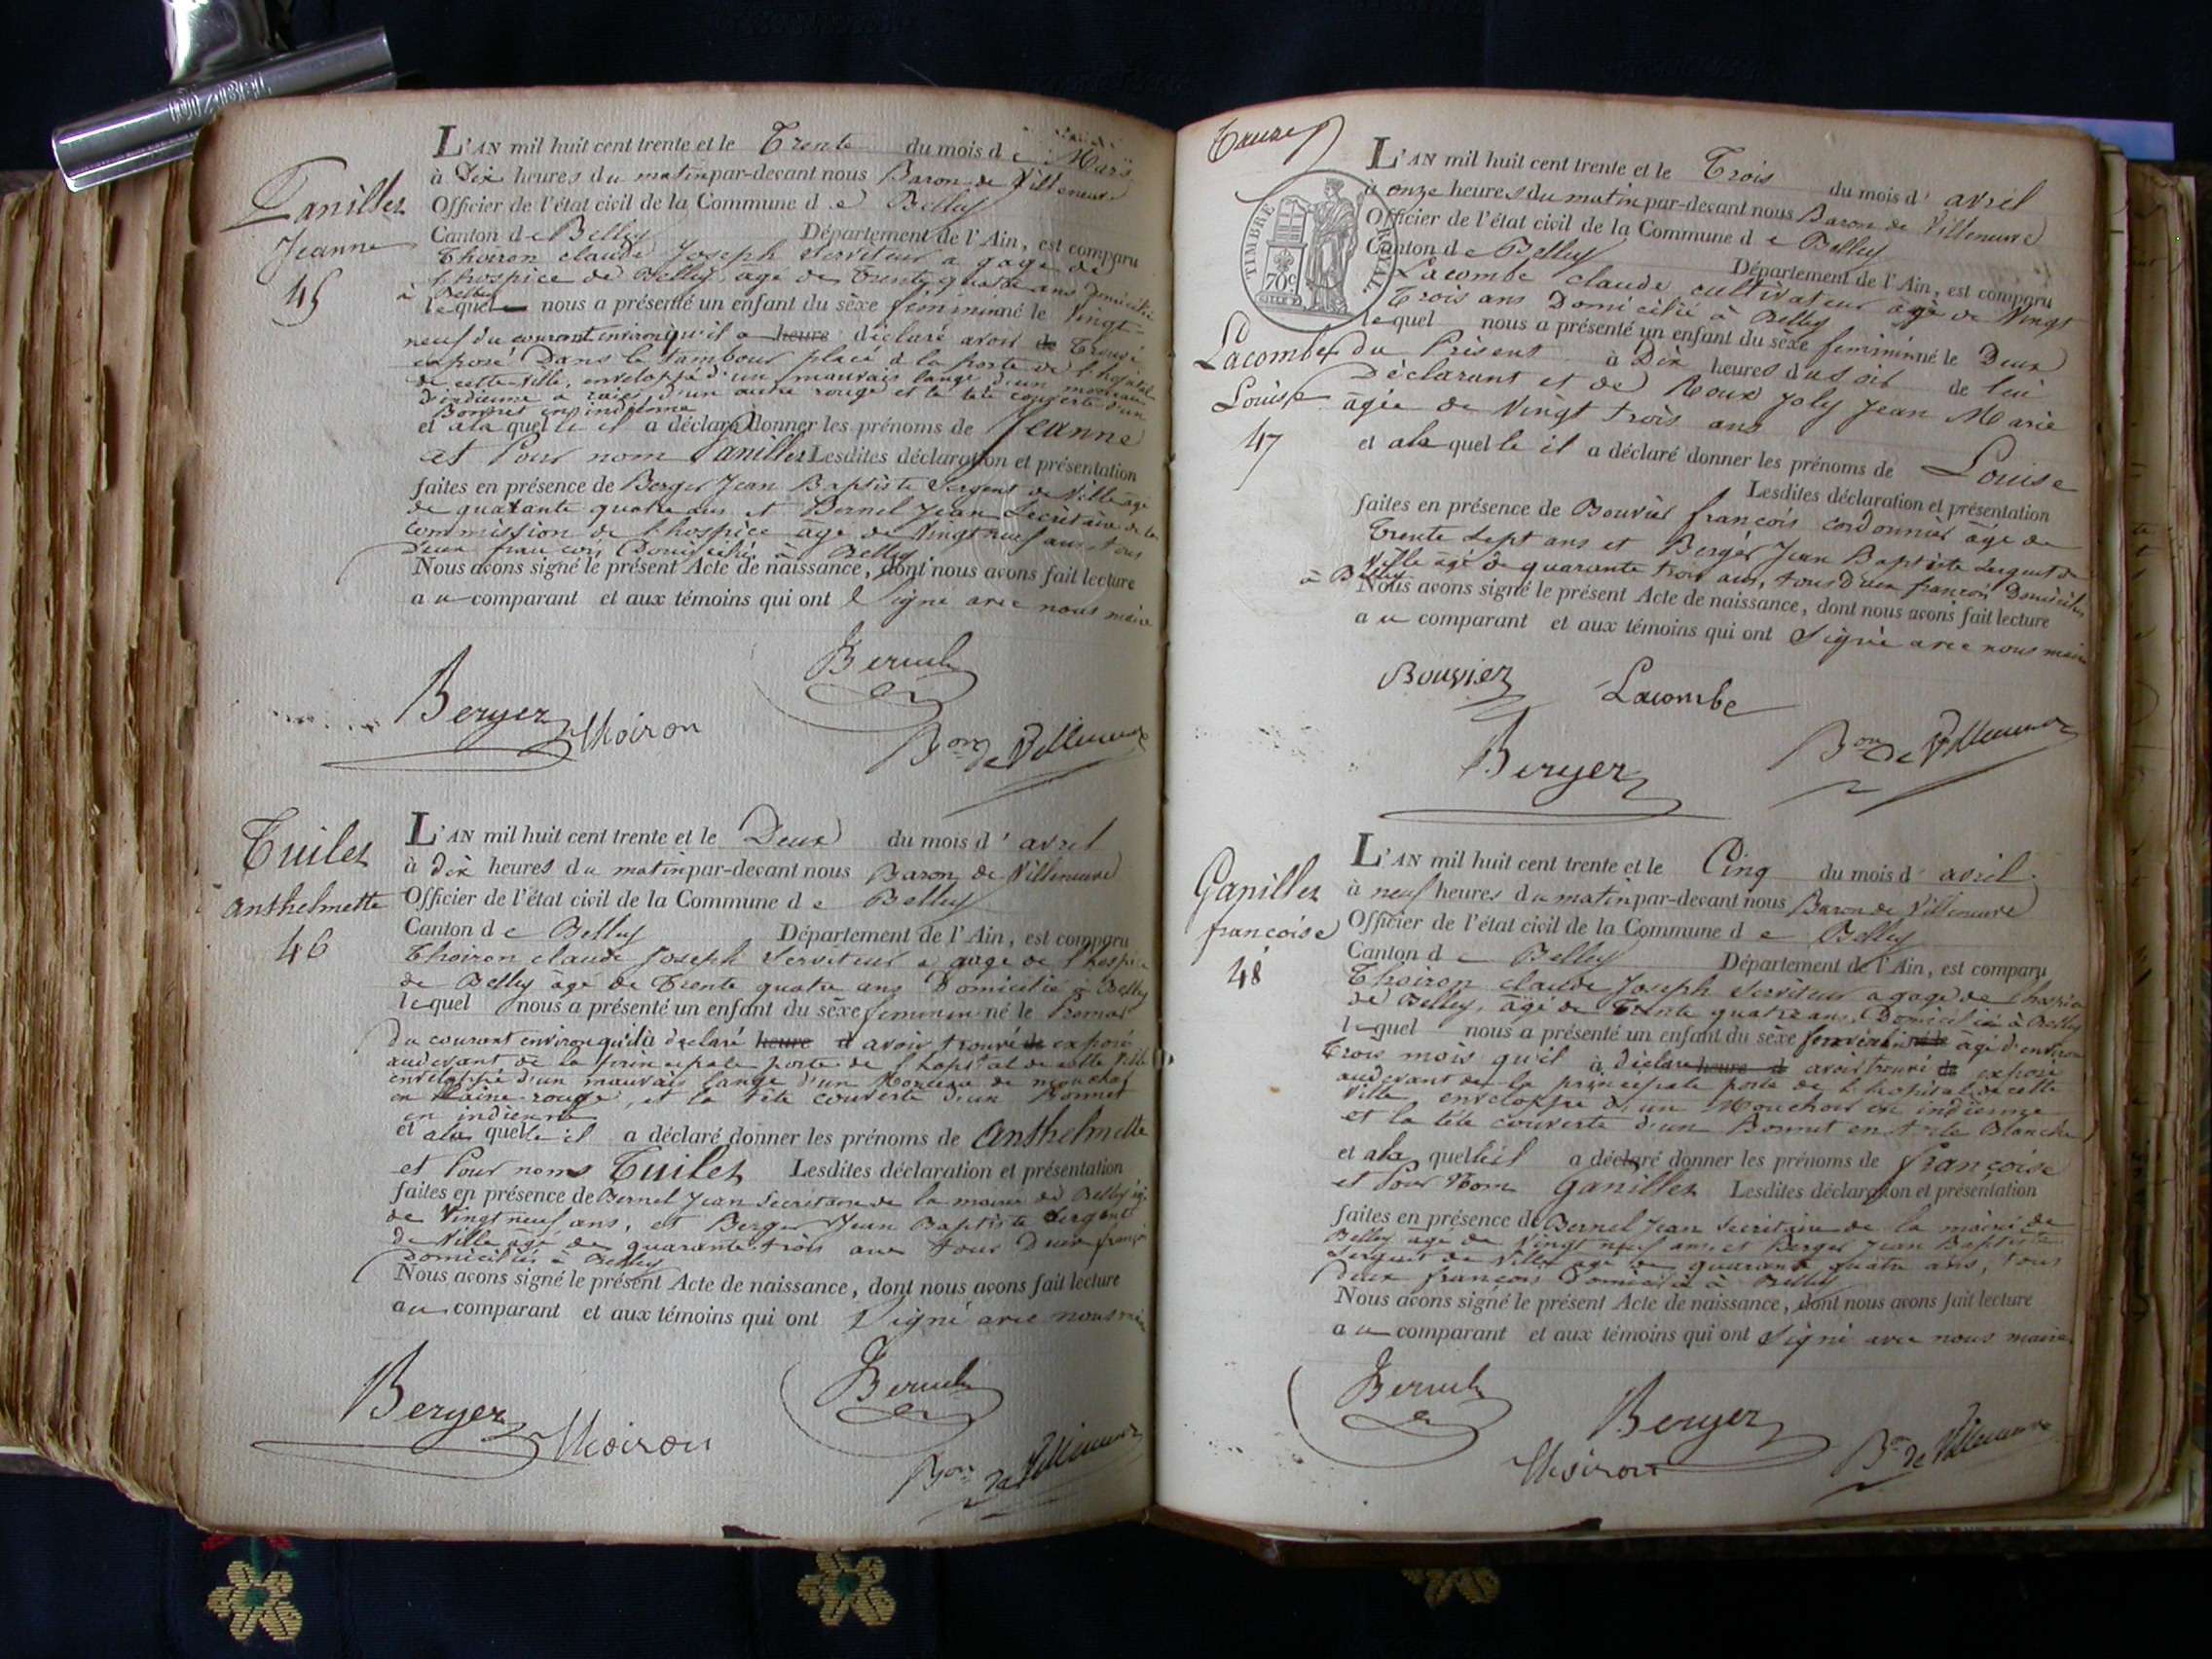 L'AN mil huit cent trente et le Trente du mois de Mars
à Dix heures du matin par-devant nous Baron de Villeneuve
Officier de l'état civil de la Commune de Belley
Canton de Belley Département de l'Ain, est comparu
Thoiron claude Joseph Serviteur a gage de
l'hospice de Belley, agé de Trente quatre ans Domicilié
à Belley
lequel nous a présenté un enfant du sèxe féminin né le Vingt-
neuf du courant environ qu'il a heure déclaré avoir de Trouvé
exposé Dans le tambour placé à la porte de l'hopital
de cette ville, enveloppé d'un mauvais lange d'un morceau
d'indienne a raies, d'un autre rouge et la tête couverte d'un
Bonnet en indienne
et a la quelle il a déclaré donner les prénoms de Jeanne
et Pour nom Panillet Lesdites déclaration et présentation
faites en présence de Berger Jean Baptiste Sergent de Ville agé
de quarante quatre ans et Bernel Jean Secrétaire de la
Commission de l'hospice âgé de Vingt neuf ans, tous
Deux françois Domiciliés à Belley
Nous avons signé le présent Acte de naissance, dont nous avons fait lecture
au comparant et aux témoins qui ont Signé avec nous maire
Panillet
Jeanne
45
Berger Thoiron Bernel
Bon de Villeneuve
Tuilet
Anthelmette
46
L'AN mil huit cent trente et le Deux du mois d'avril
à dix heures du matin par-devant nous Baron de Villeneuve
Officier de l'état civil de la Commune de Belley
Canton de Belley Département de l'Ain, est comparu
Thoiron claude Joseph Serviteur a gage de l'hospice
de Belley âgé de Trente quatre ans Domicilié à Belley
lequel nous a présenté un enfant du sèxe feminin né le Premier
du courant environ qu'il a déclaré heure d avoir trouvé de exposé
audevant de la principale porte de l'hopital de cette Ville
enveloppé d'un mauvais lange d'un Morceau de mouchoir
en laine rouge, et la tête couverte d'un Bonnet
en indienne
et a la quelle il a déclaré donner les prénoms de Anthelmette
et Pour noms Tuilet Lesdites déclaration et présentation
faites en présence de Bernel Jean Secretaire de la mairie de Belley âgé
de Vingt neuf ans, et Berger Jean Baptiste Sergent
de Ville âgé de quarante trois ans tous Deux françois
Domiciliés à Belley
Nous avons signé le présent Acte de naissance, dont nous avons fait lecture
au comparant et aux témoins qui ont Signé avec nous maire
Berger Thoiron Bernel
Bon de Villeneuve
TIMBRE ROYAL
70c
L'AN mil huit cent trente et le Trois du mois d'avril
à onze heures du matin par-devant nous Baron de Villeneuve
Officier de l'état civil de la Commune de Belley
Canton de Belley Département de l'Ain, est comparu
Lacombe claude cultivateur âgé de Vingt
Trois ans Domicilié à Belley
lequel nous a présenté un enfant du sèxe feminin né le Deux
du Présent à Dix heures du soir de lui
Déclarant et de Roux Joly Jean Marie
âgée de Vingt trois ans
et a la quelle il a déclaré donner les prénoms de Louise
Lesdites déclaration et présentation
faites en présence de Bouvier françois cordonnier âgé de
Trente Sept ans et Berger Jean Baptiste Sergent de
Ville âgé de quarante trois ans, tous Deux françois Domiciliés
à Belley
Nous avons signé le présent Acte de naissance, dont nous avons fait lecture
au comparant et aux témoins qui ont Signé avec nous maire
Lacombe
Louise
47
Bouvier Lacombe
Berger Bon de Villeneuve
Ganillet
françoise
48
L'AN mil huit cent trente et le Cinq du mois d'avril
à neuf heures du matin par-devant nous Baron de Villeneuve
Officier de l'état civil de la Commune de Belley
Canton de Belley Département de l'Ain, est comparu
Thoiron claude Joseph Serviteur a gage de l'hospice
de Belley, âgé de Trente quatre ans, Domicilié à Belley
lequel nous a présenté un enfant du sèxe feminin né le âgé d'environ
Trois mois qu'il a déclaré heure d avoir trouvé de exposé
audevant de la principale porte de l'hopital de cette
Ville enveloppé d'un Mouchoir en indienne
et la tête couverte d'un Bonnet en toile Blanche
et a la quelle il a déclaré donner les prénoms de françoise
et Pour Nom Ganillet Lesdites déclaration et présentation
faites en présence de Bernel Jean Secrétaire de la mairie de
Belley âgé de Vingt neuf ans, et Berger Jean Baptiste
Sergent de Ville âgé de quarante quatre ans, tous
deux françois Domiciliés à Belley
Nous avons signé le présent Acte de naissance, dont nous avons fait lecture
au comparant et aux témoins qui ont Signé avec nous maire
Bernel Berger
Thoiron Bon de Villeneuve